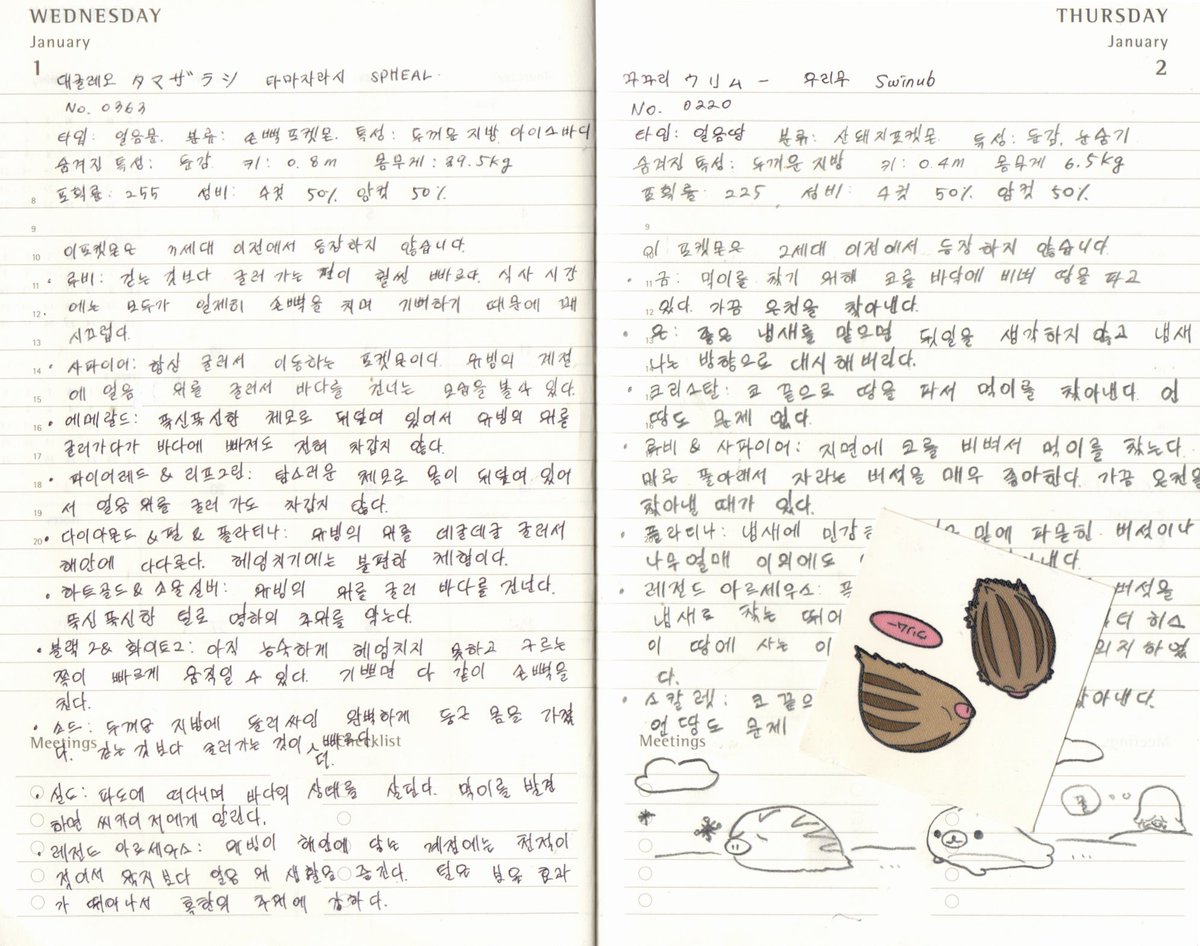 WEDNESDAY
January
1
대굴레오 タマザラシ 타마자라시 SPHEAL
No. 0363
타입: 얼음물. 분류: 손뼉포켓몬. 특성: 두꺼운 지방 아이스바디
숨겨진 특성: 둔감 키: 0.8m 몸무게: 39.5kg
8 포획률: 255 성비: 수컷 50% 암컷 50%
9
10 이포켓몬은 3세대 이전에서 등장하지 않습니다.
11 • 루비: 걷는 것보다 굴러 가는 편이 훨씬 빠르다. 식사 시간
12 에는 모두가 일제히 손뼉을 치며 기뻐하기 때문에 꽤
13 시끄럽다.
14 • 사파이어: 항상 굴러서 이동하는 포켓몬이다. 유빙의 계절
15 에 얼음 위를 굴러서 바다를 건너는 모습을 볼 수 있다.
16 • 에메랄드: 푹신푹신한 체모로 뒤덮여 있어서 유빙의 위를
17 굴러가다가 바다에 빠져도 전혀 차갑지 않다.
18 • 파이어레드 & 리프그린: 탐스러운 체모로 몸이 뒤덮여 있어
19 서 얼음 위를 굴러 가도 차갑지 않다.
20 • 다이아몬드 & 펄 & 플라티나: 유빙의 위를 데굴데굴 굴러서
해안에 다다른다. 헤엄치기에는 불편한 체형이다.
• 하트골드 & 소울실버: 유빙의 위를 굴러 바다를 건넌다.
푹신푹신한 털로 영하의 추위를 막는다.
• 블랙2 & 화이트2: 아직 능숙하게 헤엄치지 못하고 구르는
쪽이 빠르게 움직일 수 있다. 기쁘면 다 같이 손뼉을
친다.
• 소드: 두꺼운 지방에 둘러싸인 완벽하게 둥근 몸을 가졌
다. 걷는 것보다 굴러가는 것이 더 빠르다.
Meetings Checklist
• 실드: 파도에 떠다니며 바다의 상태를 살핀다. 먹이를 발견
하면 씨카이저에게 알린다.
• 레전드 아르세우스: 유빙이 해안에 닿는 계절에는 천적이
적어서 육지보다 얼음 위 생활을 즐긴다. 털은 보온 효과
가 뛰어나서 혹한의 추위에 강하다.
THURSDAY
January
2
꾸꾸리 ウリムー 우리무 Swinub
No. 0220
타입: 얼음땅 분류: 산돼지포켓몬 특성: 둔감, 눈숨기
숨겨진 특성: 두꺼운 지방 키: 0.4m 몸무게 6.5kg
포획률: 225 성비: 수컷 50% 암컷 50%
9
이 포켓몬은 2세대 이전에서 등장하지 않습니다.
11 • 금: 먹이를 찾기 위해 코를 바닥에 비벼 땅을 파고
12 있다. 가끔 온천을 찾아낸다.
• 은: 좋은 냄새를 맡으면 뒷일을 생각하지 않고 냄새
나는 방향으로 대시해버린다.
• 크리스탈: 코 끝으로 땅을 파서 먹이를 찾아낸다. 언
땅도 문제 없다.
• 루비 & 사파이어: 지면에 코를 비벼서 먹이를 찾는다.
마른 풀아래서 자라는 버섯을 매우 좋아한다. 가끔 온천을
찾아낼 때가 있다.
• 플라티나: 냄새에 민감 밑에 파묻힌 버섯이나
나무열매 이외에도 낸다.
• 레전드 아르세우스: 버섯을
냄새로 찾는 뛰어 터 히스
이 땅에 사는 이
다.
• 스칼렛: 코 끝으 찾아낸다.
언 땅도 문제
ウリムー
Meetings